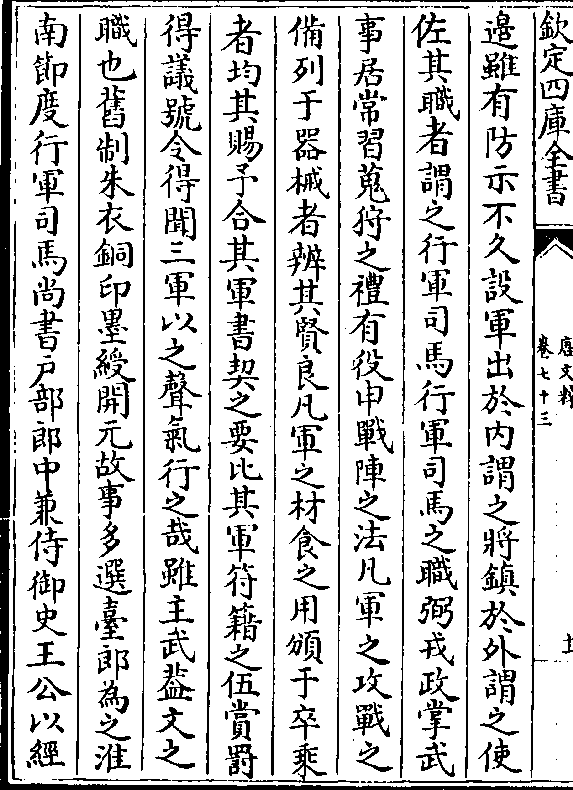 欽定四庫全書
唐文粹
卷七十三
十
邉雖有防示不久設軍出於内謂之將鎮於外謂之使
佐其職者謂之行軍司馬行軍司馬之職弼戎政掌武
事居常習蒐狩之禮有役申戰陣之法凡軍之攻戰之
備列于器械者辨其賢良凡軍之材食之用頒于卒乘
者均其賜予合其軍書契之要比其軍符籍之伍賞罰
得議號令得聞三軍以之聲氣行之哉雖主武葢文之
職也舊制朱衣銅印墨綬開元故事多選臺郎為之淮
南節度行軍司馬尚書户部郎中兼侍御史王公以經